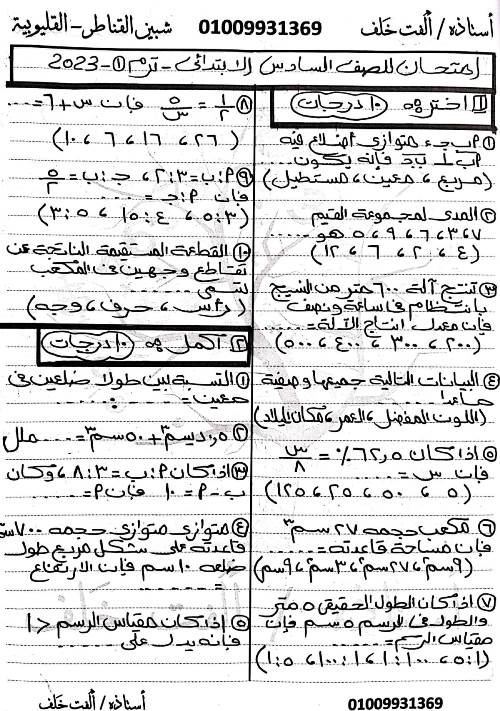 أستاذه/ ألفت خلف 01009931369 شبين القناطر-القليوبية
إمتحان للصف السادس الابتدائى - ترم ① - 2023
① اختر ** ١٠ درجات
① ٢ ب ج ء متوازي أضلاع فيه
٢ ب ⊥ ب ج فإنه يكون ....
(مربع ، معين ، مستطيل)
② المدى لمجموعة القيم
٧ ، ٣ ، ٦ ، ٩ ، ٥ هو .....
(٤ ، ٢ ، ٦ ، ١٢)
③ تنتج آلة ٦٠٠ متر من النسيج
بانتظام فى ساعة ونصف
فإن معدل انتاج الآلة = ....
(٢٠٠ ، ٣٠٠ ، ٤٠٠ ، ٥٠٠)
④ البيانات التالية جميعها وصفية
ماعدا .......
(اللون المفضل ، العمر ، مكان الميلاد)
⑤ اذا كان ٦٢,٥ ٪ = س/٨
فإن س = .....
(٥ ، ٥٠ ، ٢٥ ، ١٢٥)
⑥ مكعب حجمه ٢٧ سم٣
فإن مساحة قاعدته = .....
(٩سم ، ٢٧سم٢ ، ٣سم٢ ، ٩سم٢)
⑦ اذا كان الطول الحقيقى ٥ متر
والطول فى الرسم ٥ سم فإن
مقياس الرسم = ....
(٥:١ ، ١٠٠:١ ، ١:١٠٠ ، ١:٥)
⑧ ١/٢ = ٥/س فإن س + ٦ = ....
(٢٦ ، ١٦ ، ٦ ، ١٠)
⑨ ٢:ب = ٢:٣ ، ج:ب = ٥/٢
فإن ٢:ج = ....
(٥:٣ ، ٤:١٥ ، ٣:٥)
⑩ القطعة المستقيمة الناتجة عن
تقاطع وجهين فى المكعب
تسمى ........
(رأس ، حرف ، وجه)
② أكمل ** ١٠ درجات
① النسبة بين طولا ضلعين فى
معين = ..... : .....
② ٠,٥ ديسم٣ + ٥٠ سم٣ = ..... ملل
③ اذا كان ٢ : ب = ٣ : ٨ ، وكان
ب - ٢ = ١٠ فإن ٢ = .....
④ متوازي متوازي حجمه ٧٠٠ سم
قاعدته على شكل مربع طول
ضلعه ١٠ سم فإن الارتفاع
= .....
⑤ إذا كان مقياس الرسم > ١
فإنه يدل على .....
أستاذه / ألفت خلف 01009931369